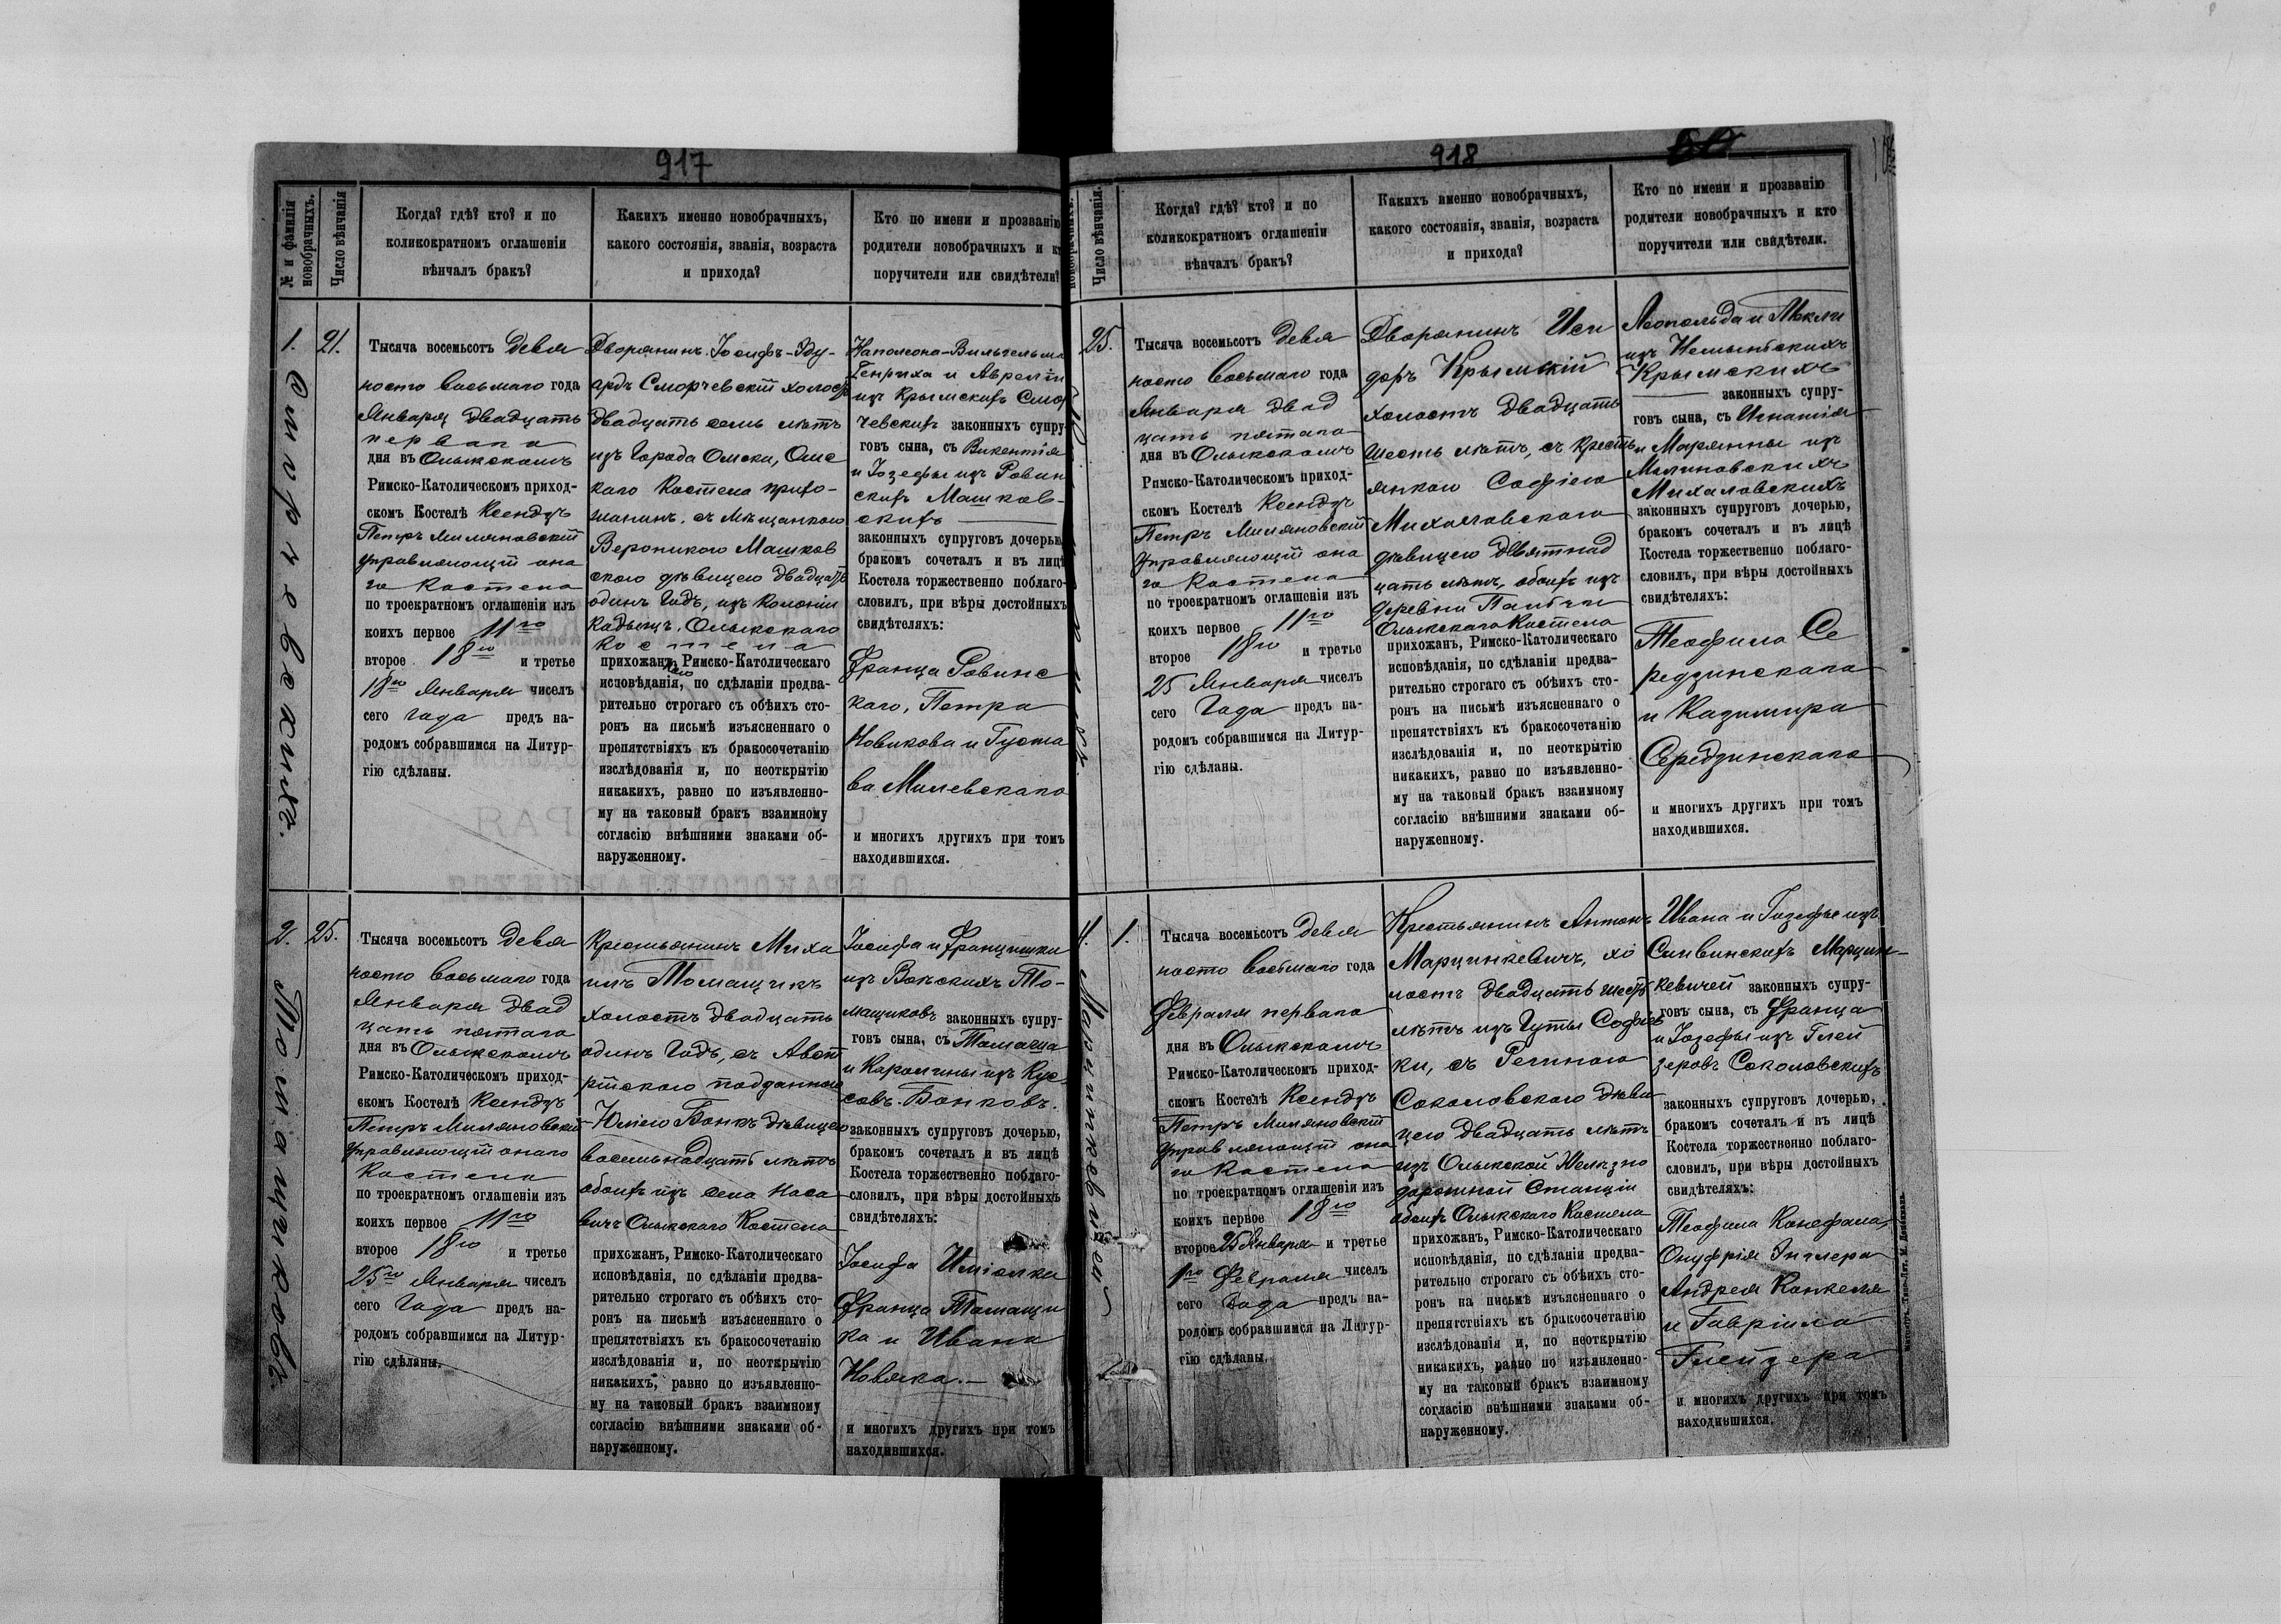 917
№ и фамилія новобрачныхъ.
Число вѣнчанія
Когда? гдѣ? кто? и по
коликократномъ оглашеніи
вѣнчалъ бракъ?
Какихъ именно новобрачныхъ,
какого состоянія, званія, возраста
и прихода?
Кто по имени и прозванію
родители новобрачныхъ и кт
поручители или свидѣтели?
1.
21.
Тысяча восемьсотъ девя
носто восьмаго года
Января двадцать
перваго
дня въ Олыкскомъ
Римско-Католическомъ приход-
скомъ Костелѣ Ксендзъ
Петръ Миляновскій
управляющій она
го Костела
по троекратномъ оглашеніи изъ
коихъ первое 11го
второе 18го и третье
18го Января чиселъ
сего года предъ на-
родомъ собравшимся на Литур-
гію сдѣланы.
Дворянинъ Іосифъ-Эду-
ардъ Сморчевскій холостъ
двадцать семь лѣтъ
изъ города Омска, Омс
каго Костела прихо-
жанинъ, съ мѣщанкою
Вероникою Машков
скою дѣвицею двадцать
одинъ годъ, изъ колоніи
Кадыщъ, Олыкскаго
Костела
прихожан Римско-Католическаго
исповѣданія, по сдѣланіи предва-
рительно строгаго съ обѣихъ сто-
ронъ на письмѣ изъясненнаго о
препятствіяхъ къ бракосочетанію
изслѣдованія и, по неоткрытію
никакихъ, равно по изъявленно-
му на таковый бракъ взаимному
согласію внѣшними знаками об-
наруженному.
Наполеона-Вильгельма
Генриха и Авреліи
изъ Крымскихъ Смор
чевскихъ законныхъ супру
говъ сына, съ Викентія
и Іозефы изъ Ровин
скихъ Машков-
скихъ
законныхъ супруговъ дочерью
бракомъ сочеталъ и въ лицѣ
Костела торжественно поблаго-
словилъ, при вѣры достойныхъ
свидѣтеляхъ:
Франца Ровинс
каго, Петра
Новикова и Густа
ва Милевскаго
и многихъ другихъ при томъ
находившихся.
2. Томащиковъ.
25.
Тысяча восемьсотъ девя
носто восьмаго года
Января двад
цать пятаго
дня въ Олыкскомъ
Римско-Католическомъ приход-
скомъ Костелѣ Ксендзъ
Петръ Миляновскій
управляющій онаго
Костела
по троекратномъ оглашеніи изъ
коихъ первое 11го
второе 18го и третье
25го Января чиселъ
сего года предъ на-
родомъ собравшимся на Литур-
гію сдѣланы.
Крестьянинъ Миха
илъ Томащикъ
холостъ двадцать
одинъ годъ, съ Авст
рійскою подданною
Юліею Бонкъ дѣвицею
восемьнадцать лѣтъ
обоихъ изъ села Носо
вичъ Олыкскаго Костела
прихожанъ, Римско-Католическаго
исповѣданія, по сдѣланіи предва-
рительно строгаго съ обѣихъ сто-
ронъ на письмѣ изъясненнаго о
препятствіяхъ къ бракосочетанію
изслѣдованія и, по неоткрытію
никакихъ, равно по изъявленно-
му на таковый бракъ взаимному
согласію внѣшними знаками об-
наруженному.
Іосифа и Францишки
изъ То-
мащиковъ законныхъ супру-
говъ сына, съ Томаша
и Каролины изъ Кус
совъ Бонковъ.
законныхъ супруговъ дочерью,
бракомъ сочеталъ и въ лицѣ
Костела торжественно поблаго-
словилъ, при вѣры достойныхъ
свидѣтеляхъ:
Іосифа
Франца Томащи
ка и Ивана
Новяка.
и многихъ другихъ при томъ
находившихся.
918
новобрачныхъ.
Число вѣнчанія.
Когда? гдѣ? кто? и по
коликократномъ оглашеніи
вѣнчалъ бракъ?
Какихъ именно новобрачныхъ,
какого состоянія, званія, возраста
и прихода?
Кто по имени и прозванію
родители новобрачныхъ и кто
поручители или свидѣтели.
25.
Тысяча восемьсотъ девя
носто восьмаго года
Января двад
цать пятаго
дня въ Олыкскомъ
Римско-Католическомъ приход-
скомъ Костелѣ Ксендзъ
Петръ Миляновскій
управляющій она
го Костела
по троекратномъ оглашеніи изъ
коихъ первое 11го
второе 18го и третье
25 Января чиселъ
сего года предъ на-
родомъ собравшимся на Литур-
гію сдѣланы.
Дворянинъ Иси
доръ Крымскій
холостъ двадцать
шесть лѣтъ, съ кресть
янкою Софіею
Михаловскою
дѣвицею девятнад
цать лѣтъ, обоихъ изъ
деревни
Олыкскаго Костела
прихожанъ, Римско-Католическаго
исповѣданія, по сдѣланіи предва-
рительно строгаго съ обѣихъ сто-
ронъ на письмѣ изъясненнаго о
препятствіяхъ къ бракосочетанію
изслѣдованія и, по неоткрытію
никакихъ, равно по изъявленно-
му на таковый бракъ взаимному
согласію внѣшними знаками об-
наруженному.
Леопольда и Текли
изъ
Крымскихъ
законныхъ супру-
говъ сына, съ Игнатія
и Маріянны изъ
Малиновскихъ
Михаловскихъ
законныхъ супруговъ дочерью,
бракомъ сочеталъ и въ лицѣ
Костела торжественно поблаго-
словилъ, при вѣры достойныхъ
свидѣтеляхъ:
Теофила Се
редзинскаго
и Казимира
Середзинскаго
и многихъ другихъ при томъ
находившихся.
4. Марцинкевичей
1.
Тысяча восемьсотъ девя
носто восьмаго года
Февраля перваго
дня въ Олыкскомъ
Римско-Католическомъ приход-
скомъ Костелѣ Ксендзъ
Петръ Миляновскій
управляющій она
го Костела
по троекратномъ оглашеніи изъ
коихъ первое 18го
второе 25 Января и третье
1го Февраля чиселъ
сего года предъ на-
родомъ собравшимся на Литур-
гію сдѣланы.
Крестьянинъ Антонъ
Марцинкевичъ, хо
лостъ двадцать шесть
лѣтъ изъ Гуты Софіев
ки, съ Региною
Соколовскою дѣви
цею двадцать лѣтъ
изъ Олыкской Желѣзно
дорожной Станціи
обоихъ Олыкскаго Костела
прихожанъ, Римско-Католическаго
исповѣданія, по сдѣланіи предва-
рительно строгаго съ обѣихъ сто-
ронъ на письмѣ изъясненнаго о
препятствіяхъ къ бракосочетанію
изслѣдованія и, по неоткрытію
никакихъ, равно по изъявленно-
му на таковый бракъ взаимному
согласію внѣшними знаками об-
наруженному.
Ивана и Іозефы изъ
Сливинскихъ Марцин-
кевичей законныхъ супру-
говъ сына, съ Франца
и Іозефы изъ Глей
зеровъ Соколовскихъ
законныхъ супруговъ дочерью,
бракомъ сочеталъ и въ лицѣ
Костела торжественно поблаго-
словилъ, при вѣры достойныхъ
свидѣтеляхъ:
Теофила Конефала,
Онуфрія Энглера
АндреяКонкеля
и Гавріила
Глейзера
и многихъ другихъ при томъ
находившихся.